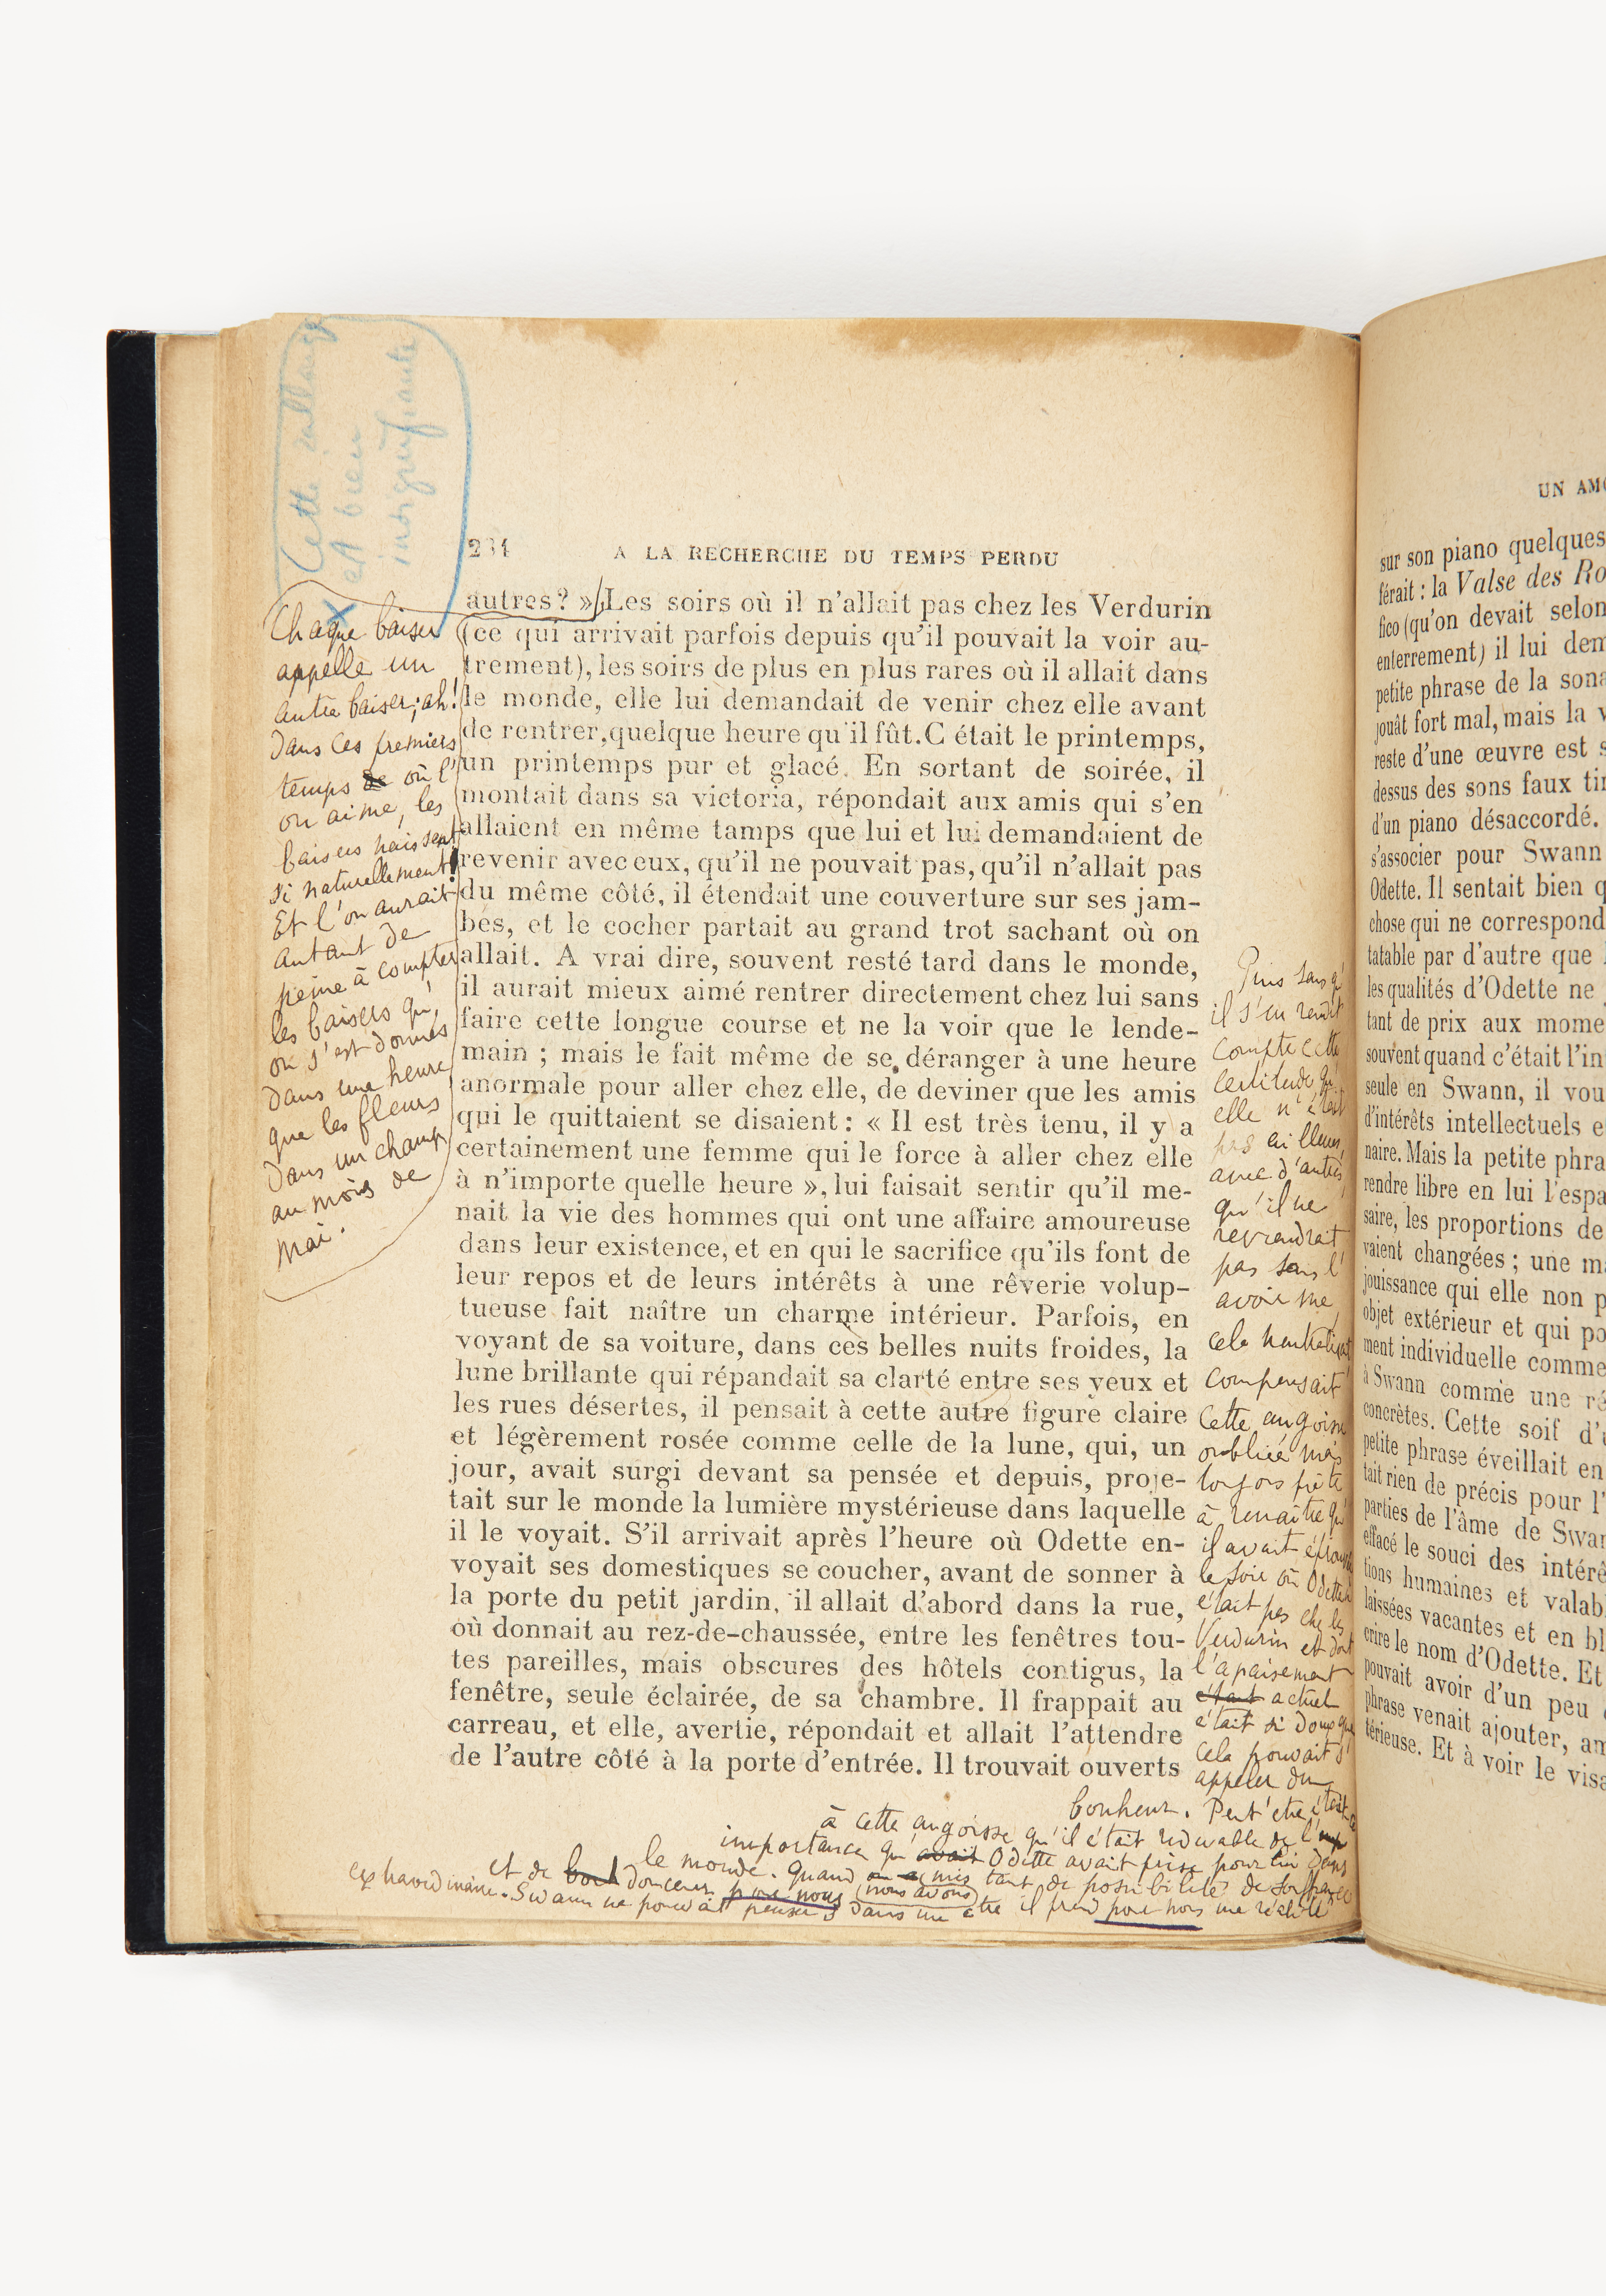 Cette
est bien
insignifiante
234
A LA RECHERCHE DU TEMPS PERDU
Chaque baiser
appelle un
autre baiser; ah!
Dans ces premiers
temps de où l'
on aime, les
baisers naissent
si naturellement!
Et l'on aurait
autant de
peine à compter
les baisers qu'
on s'est donnés
dans une heure
que les fleurs
dans un champ
au mois de
mai.
autres? » Les soirs où il n'allait pas chez les Verdurin
(ce qui arrivait parfois depuis qu'il pouvait la voir au-
trement), les soirs de plus en plus rares où il allait dans
le monde, elle lui demandait de venir chez elle avant
de rentrer, quelque heure qu'il fût. C'était le printemps,
un printemps pur et glacé. En sortant de soirée, il
montait dans sa victoria, répondait aux amis qui s'en
allaient en même tamps que lui et lui demandaient de
revenir avec eux, qu'il ne pouvait pas, qu'il n'allait pas
du même côté, il étendait une couverture sur ses jam-
bes, et le cocher partait au grand trot sachant où on
allait. A vrai dire, souvent resté tard dans le monde,
il aurait mieux aimé rentrer directement chez lui sans
faire cette longue course et ne la voir que le lende-
main ; mais le fait même de se déranger à une heure
anormale pour aller chez elle, de deviner que les amis
qui le quittaient se disaient : « Il est très tenu, il y a
certainement une femme qui le force à aller chez elle
à n'importe quelle heure », lui faisait sentir qu'il me-
nait la vie des hommes qui ont une affaire amoureuse
dans leur existence, et en qui le sacrifice qu'ils font de
leur repos et de leurs intérêts à une rêverie volup-
tueuse fait naître un charme intérieur. Parfois, en
voyant de sa voiture, dans ces belles nuits froides, la
lune brillante qui répandait sa clarté entre ses yeux et
les rues désertes, il pensait à cette autre figure claire
et légèrement rosée comme celle de la lune, qui, un
jour, avait surgi devant sa pensée et depuis, proje-
tait sur le monde la lumière mystérieuse dans laquelle
il le voyait. S'il arrivait après l'heure où Odette en-
voyait ses domestiques se coucher, avant de sonner à
la porte du petit jardin, il allait d'abord dans la rue,
où donnait au rez-de-chaussée, entre les fenêtres tou-
tes pareilles, mais obscures des hôtels contigus, la
fenêtre, seule éclairée, de sa chambre. Il frappait au
carreau, et elle, avertie, répondait et allait l'attendre
de l'autre côté à la porte d'entrée. Il trouvait ouverts
Puis sans qu'
il s'en rendit
compte cette
certitude qu'
elle n'était
pas ailleurs,
avec d'autres,
qu'il ne
reviendrait
pas sans l'
avoir vue,
cela neutralisait
compensait
cette angoisse
oubliée mais
toujours prête
à renaître qu'
il avait éprouvée
le soir où Odette n'
était pas chez les
Verdurin et dont
l'apaisement
était actuel
était si doux que
cela pouvait s'
appeler du
bonheur. Peut'être était ce
à cette angoisse qu'il était redevable de l'imp
importance qu' avait Odette avait prise pour lui dans
le monde. Quand nous avons mis tant de possibilité de souffrance
et de douceur pour nous dans un être il prend pour nous une réalité
extraordinaire. Swann ne pouvait penser
UN AMO
sur son piano quelques
férait : la Valse des Ro
fico (qu'on devait selon
enterrement) il lui dem
petite phrase de la sona
jouât fort mal, mais la v
reste d'une œuvre est s
dessus des sons faux tir
d'un piano désaccordé.
s'associer pour Swann
Odette. Il sentait bien q
chose qui ne correspond
tatable par d'autre que l
les qualités d'Odette ne
tant de prix aux mome
souvent quand c'était l'in
seule en Swann, il vou
d'intérêts intellectuels e
naire. Mais la petite phra
rendre libre en lui l'espa
saire, les proportions de
vaient changées ; une ma
jouissance qui elle non p
objet extérieur et qui po
ment individuelle comme
à Swann comme une ré
concrètes. Cette soif d'i
petite phrase éveillait en
tait rien de précis pour l'
parties de l'âme de Swan
effacé le souci des intérê
tions humaines et valab
laissées vacantes et en bl
crire le nom d'Odette. Et
pouvait avoir d'un peu
phrase venait ajouter, am
térieuse. Et à voir le visa